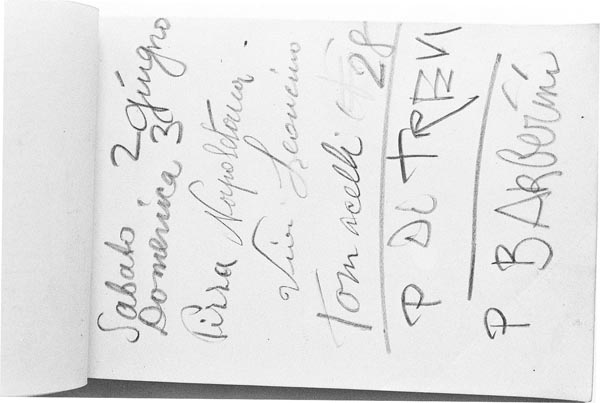 Sabato 2 giugno
Domenica 3
Pizza Napoletana
Via Leoncino
Tomacelli 28
P DI TREVI
P BARBERINI